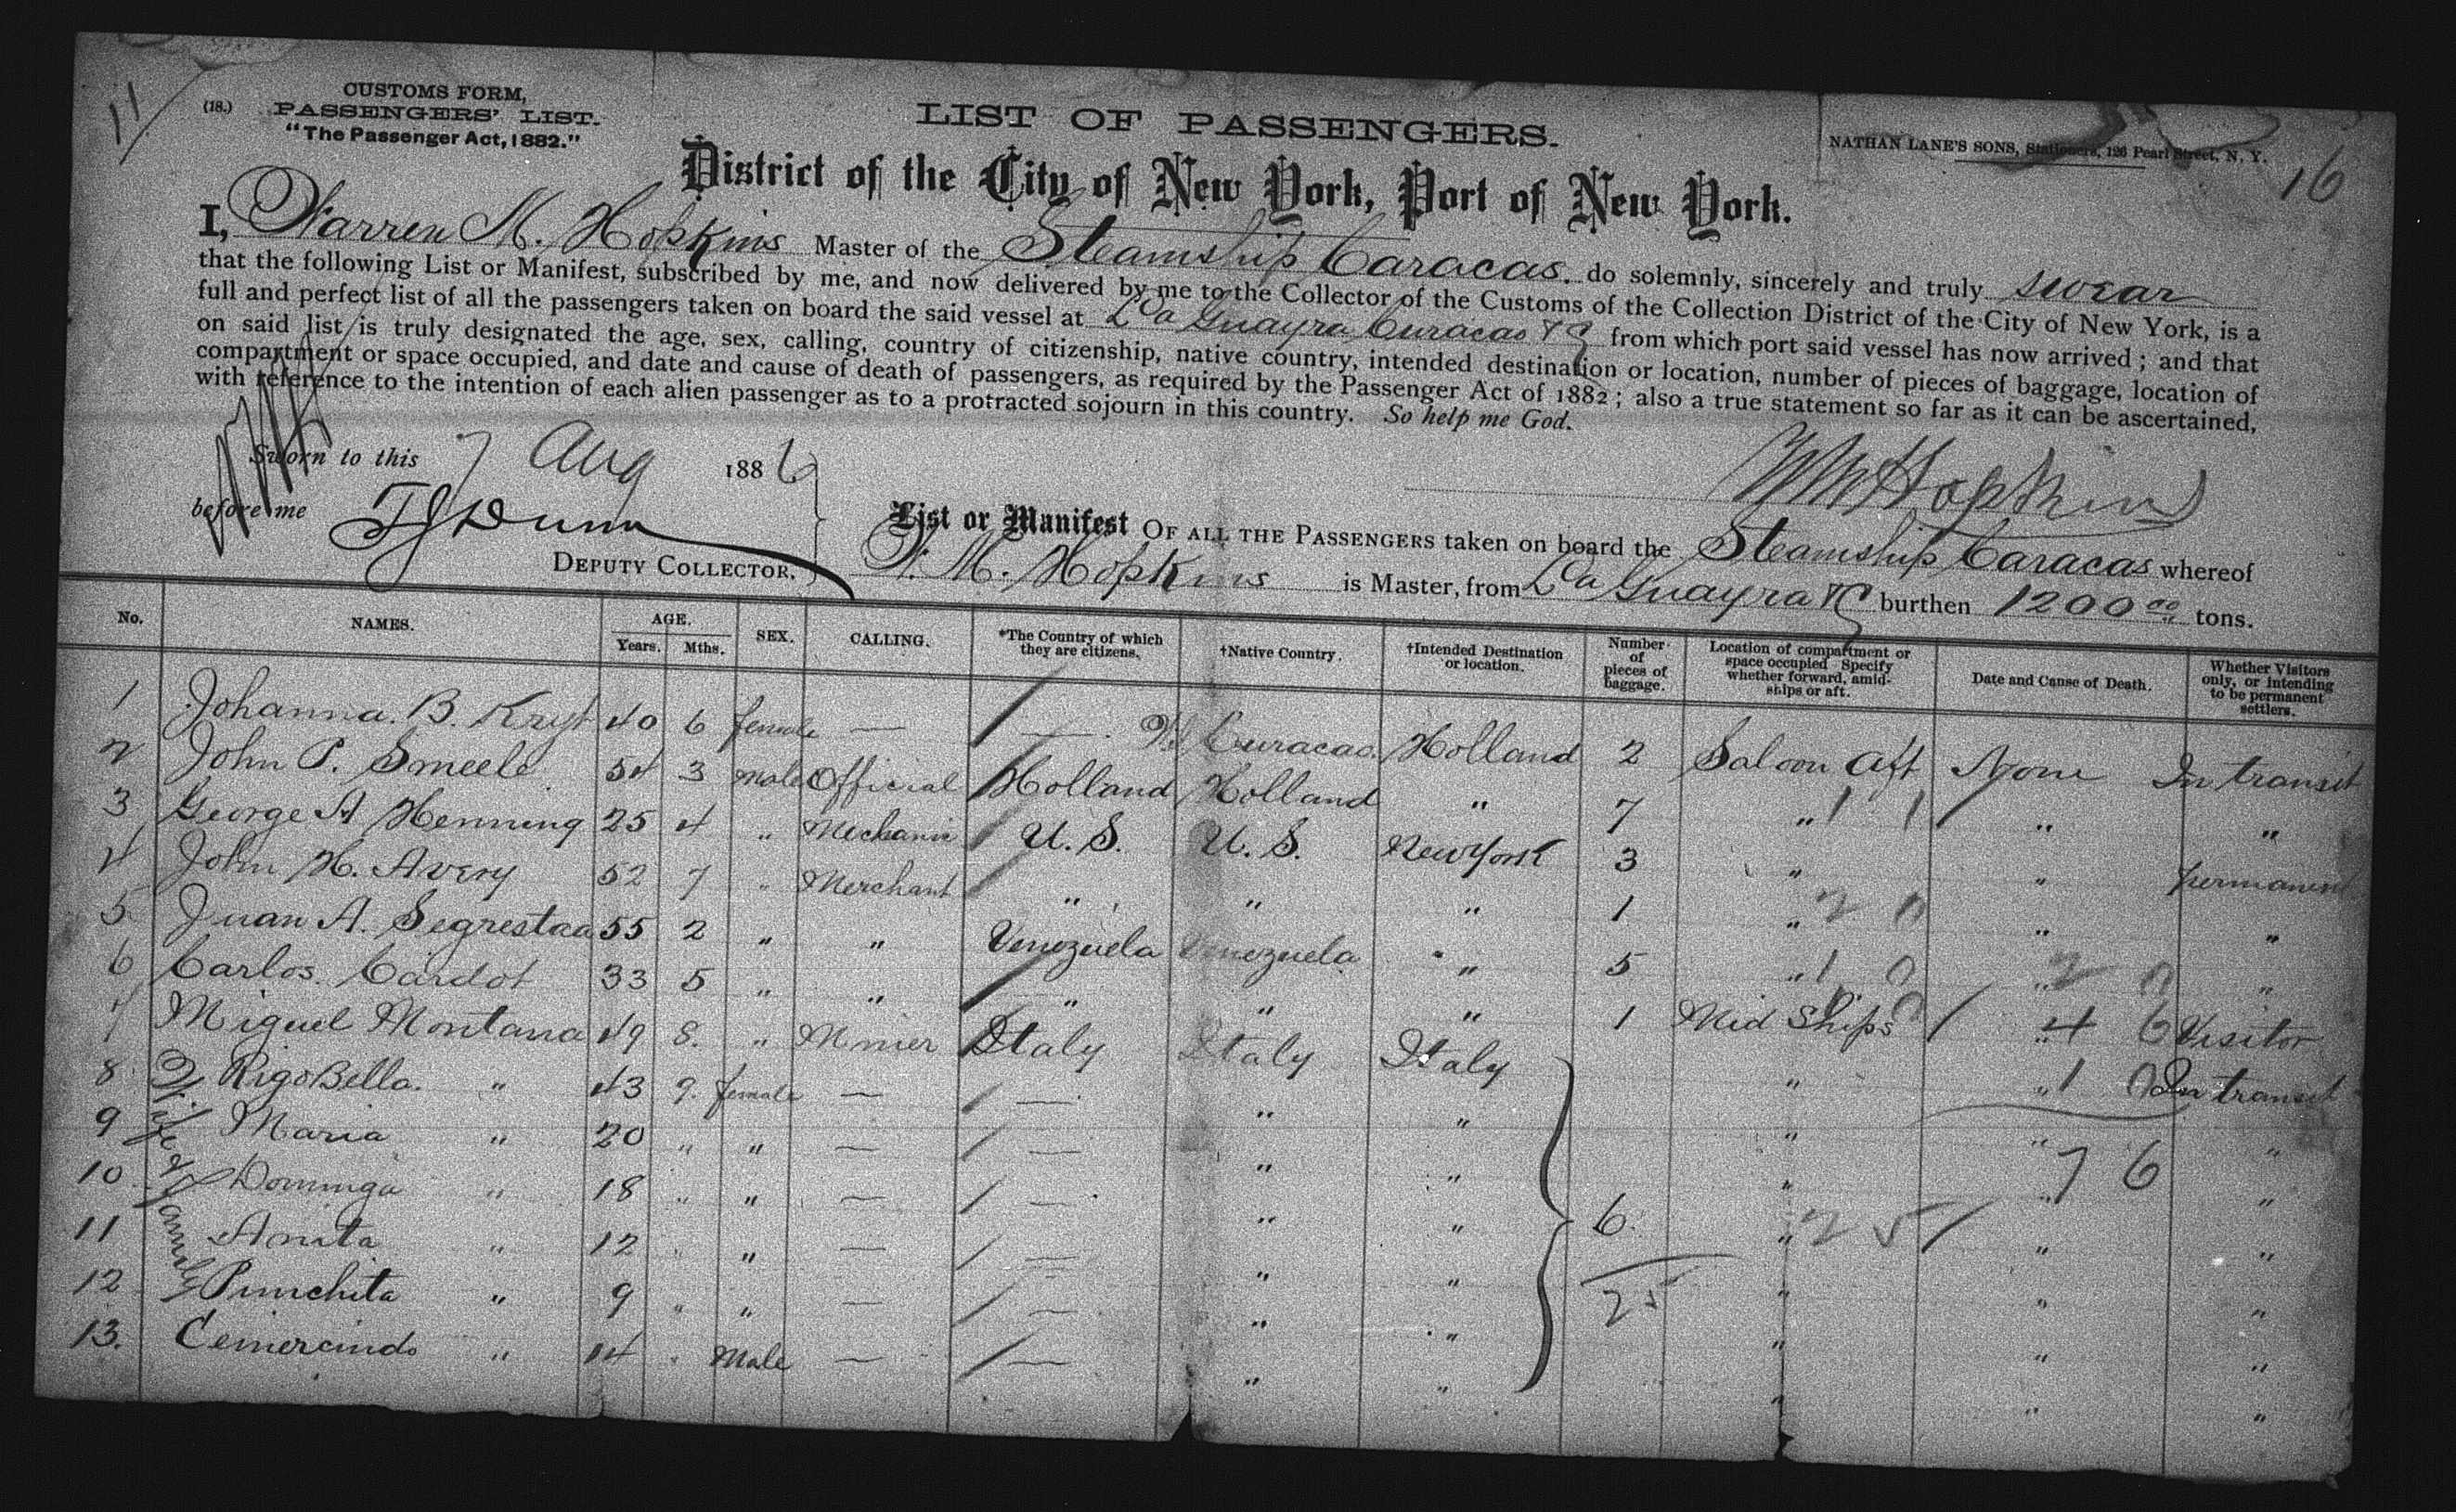 11
(18.)
CUSTOMS FORM,
PASSENGERS' LIST.
"The Passenger Act, 1882."
LIST OF PASSENGERS.
NATHAN LANE'S SONS, Stationers, 126 Pearl Street, N. Y.
16
District of the City of New York, Port of New York.
I, Warren M. Hopkins Master of the Steamship Caracas. do solemnly, sincerely and truly swear
that the following List or Manifest, subscribed by me, and now delivered by me to the Collector of the Customs of the Collection District of the City of New York, is a
full and perfect list of all the passengers taken on board the said vessel at La Guayra Curacao &c from which port said vessel has now arrived; and that
on said list is truly designated the age, sex, calling, country of citizenship, native country, intended destination or location, number of pieces of baggage, location of
compartment or space occupied, and date and cause of death of passengers, as required by the Passenger Act of 1882; also a true statement so far as it can be ascertained,
with reference to the intention of each alien passenger as to a protracted sojourn in this country. So help me God.
Sworn to this 7 Aug 1886
WM Hopkins
before me TJ Dunn
DEPUTY COLLECTOR.
List or Manifest OF ALL THE PASSENGERS taken on board the Steamship Caracas whereof
W. M. Hopkins is Master, from La Guayra &c burthen 1200 00 tons.
No. NAMES. AGE. Years. Mths. SEX. CALLING. *The Country of which they are citizens. †Native Country. †Intended Destination or location. Number of pieces of baggage. Location of compartment or space occupied Specify whether forward, amidships or aft. Date and Cause of Death. Whether Visitors only, or intending to be permanent settlers.
1 Johanna. B. Kruyt 40 6 female — — Curacao. Holland 2 Saloon Aft None In transit
2 John P. Smeele 54 3 male Official Holland Holland " 7 " " "
3 George A Henning 25 4 " Mechanic U. S. U. S. New York 3 " " permanent
4 John H. Avery 52 7 " Merchant " " " 1 " " "
5 Juan A. Segrestaa 55 2 " " Venezuela Venezuela " 5 " " "
6 Carlos. Cardot 33 5 " " " " " 1 Mid Ships " Visitor
7 Miguel Montana 49 8. " Minier Italy Italy Italy " " In transit
8 Wife & Family RigoBella. " 43 9. female — — " " " " "
9 Maria " 20 " " — — " " " " "
10 Dominga " 18 " " — — " " 6. " " "
11 Anita " 12 " " — — " " " " "
12 Punchita " 9 " " — — " " " " "
13. Cemercindo " 14 " Male — — " " " " "
25
7 6